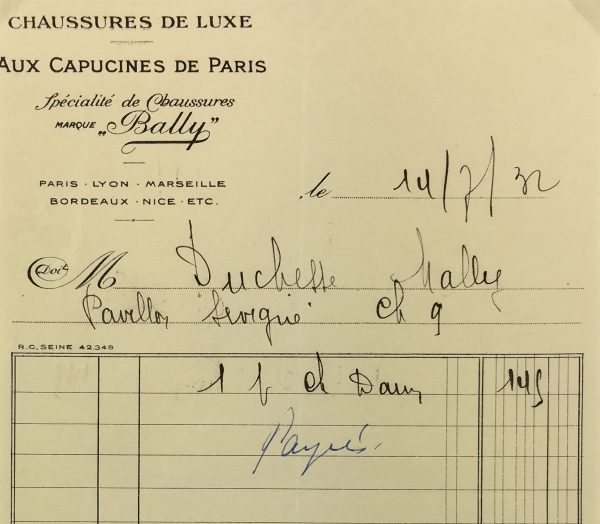 CHAUSSURES DE LUXE
AUX CAPUCINES DE PARIS
Spécialité de Chaussures
MARQUE „Bally"
PARIS · LYON · MARSEILLE
BORDEAUX · NICE · ETC.
le 14/7/32
Doit M Duchesse Mally
Pavillon Sevigné ch 9
R.C. SEINE 42.349
1 p ch Dam 145
Payés.